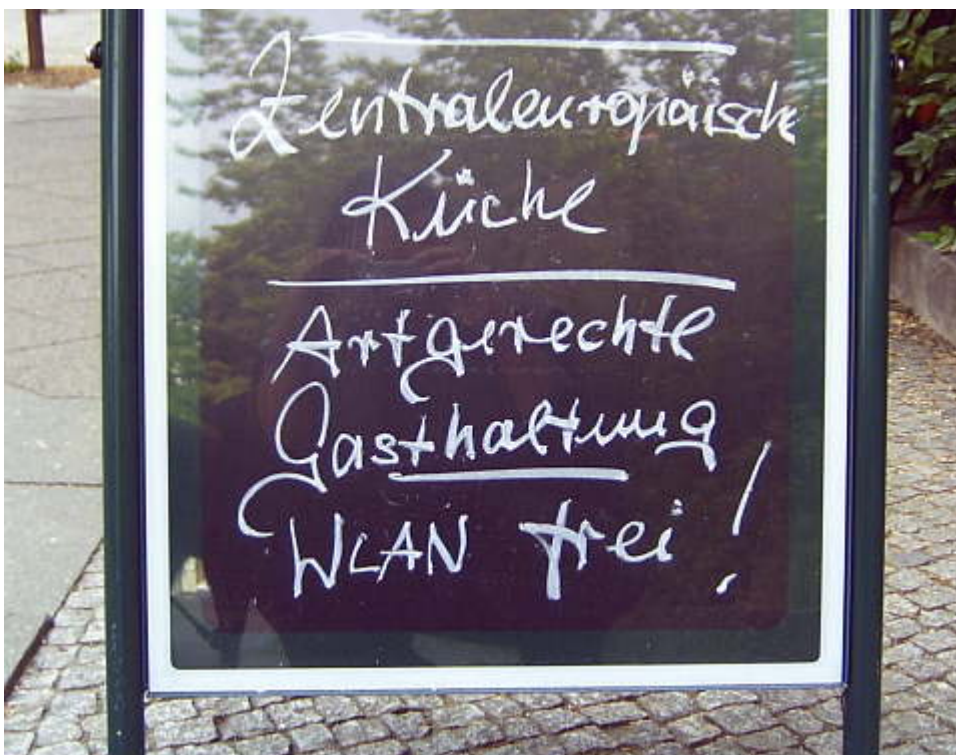 Zentraleuropäische
Küche
Artgerechte
Gasthaltung
WLAN frei!